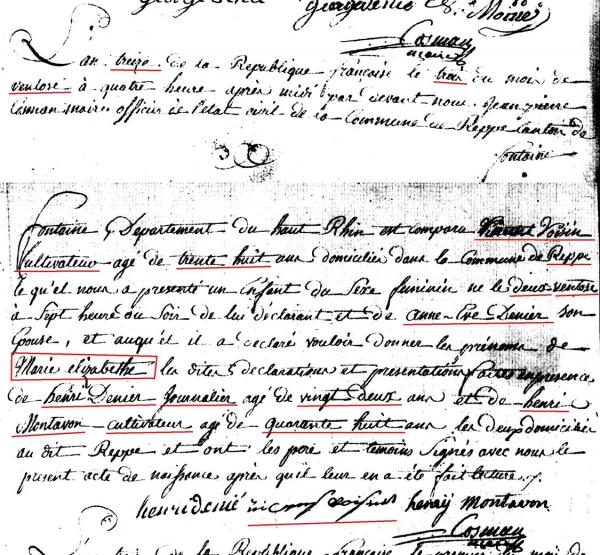 Cosman
maire
L'an treize de la Republique française le trois du mois de
ventose à quatre heure après midi par devant nous Jean pierre
Cosman maire officier de l'état civil de la Commune de Reppe Canton de
fontaine
fontaine Departement du haut Rhin est comparu Voisin
Cultivateur agé de trente huit ans domicilié dans la Commune de Reppe
le qu'el nous a presenté un Enfant du Sexe feminin né le deux ventose
à Sept heure du Soir de lui déclarant et de anne-Eve Denier son
Epouse, et auquel il a declaré vouloir donner les prénoms de
Marie elizabethe les dites declarations et presentations faites en presence
de henri Denier Journalier agé de vingt deux ans et de henri
Montavon cultivateur agé de quarante huit ans les deux domiciliés
au dit Reppe et ont les pere et temoins signés avec nous le
present acte de naissance après qu'il leur en a été fait lecture
henri denié henrÿ montavon
Cosman
maire
la Republique